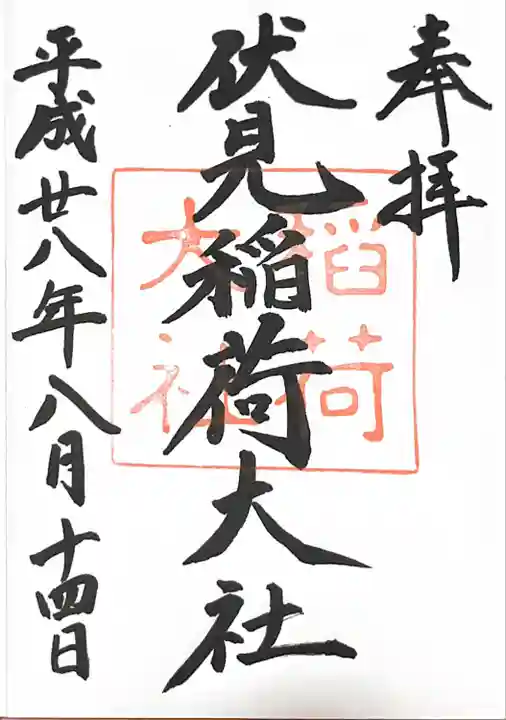 奉拝
伏見稲荷大社
稲荷
大社
平成廿八年八月十四日